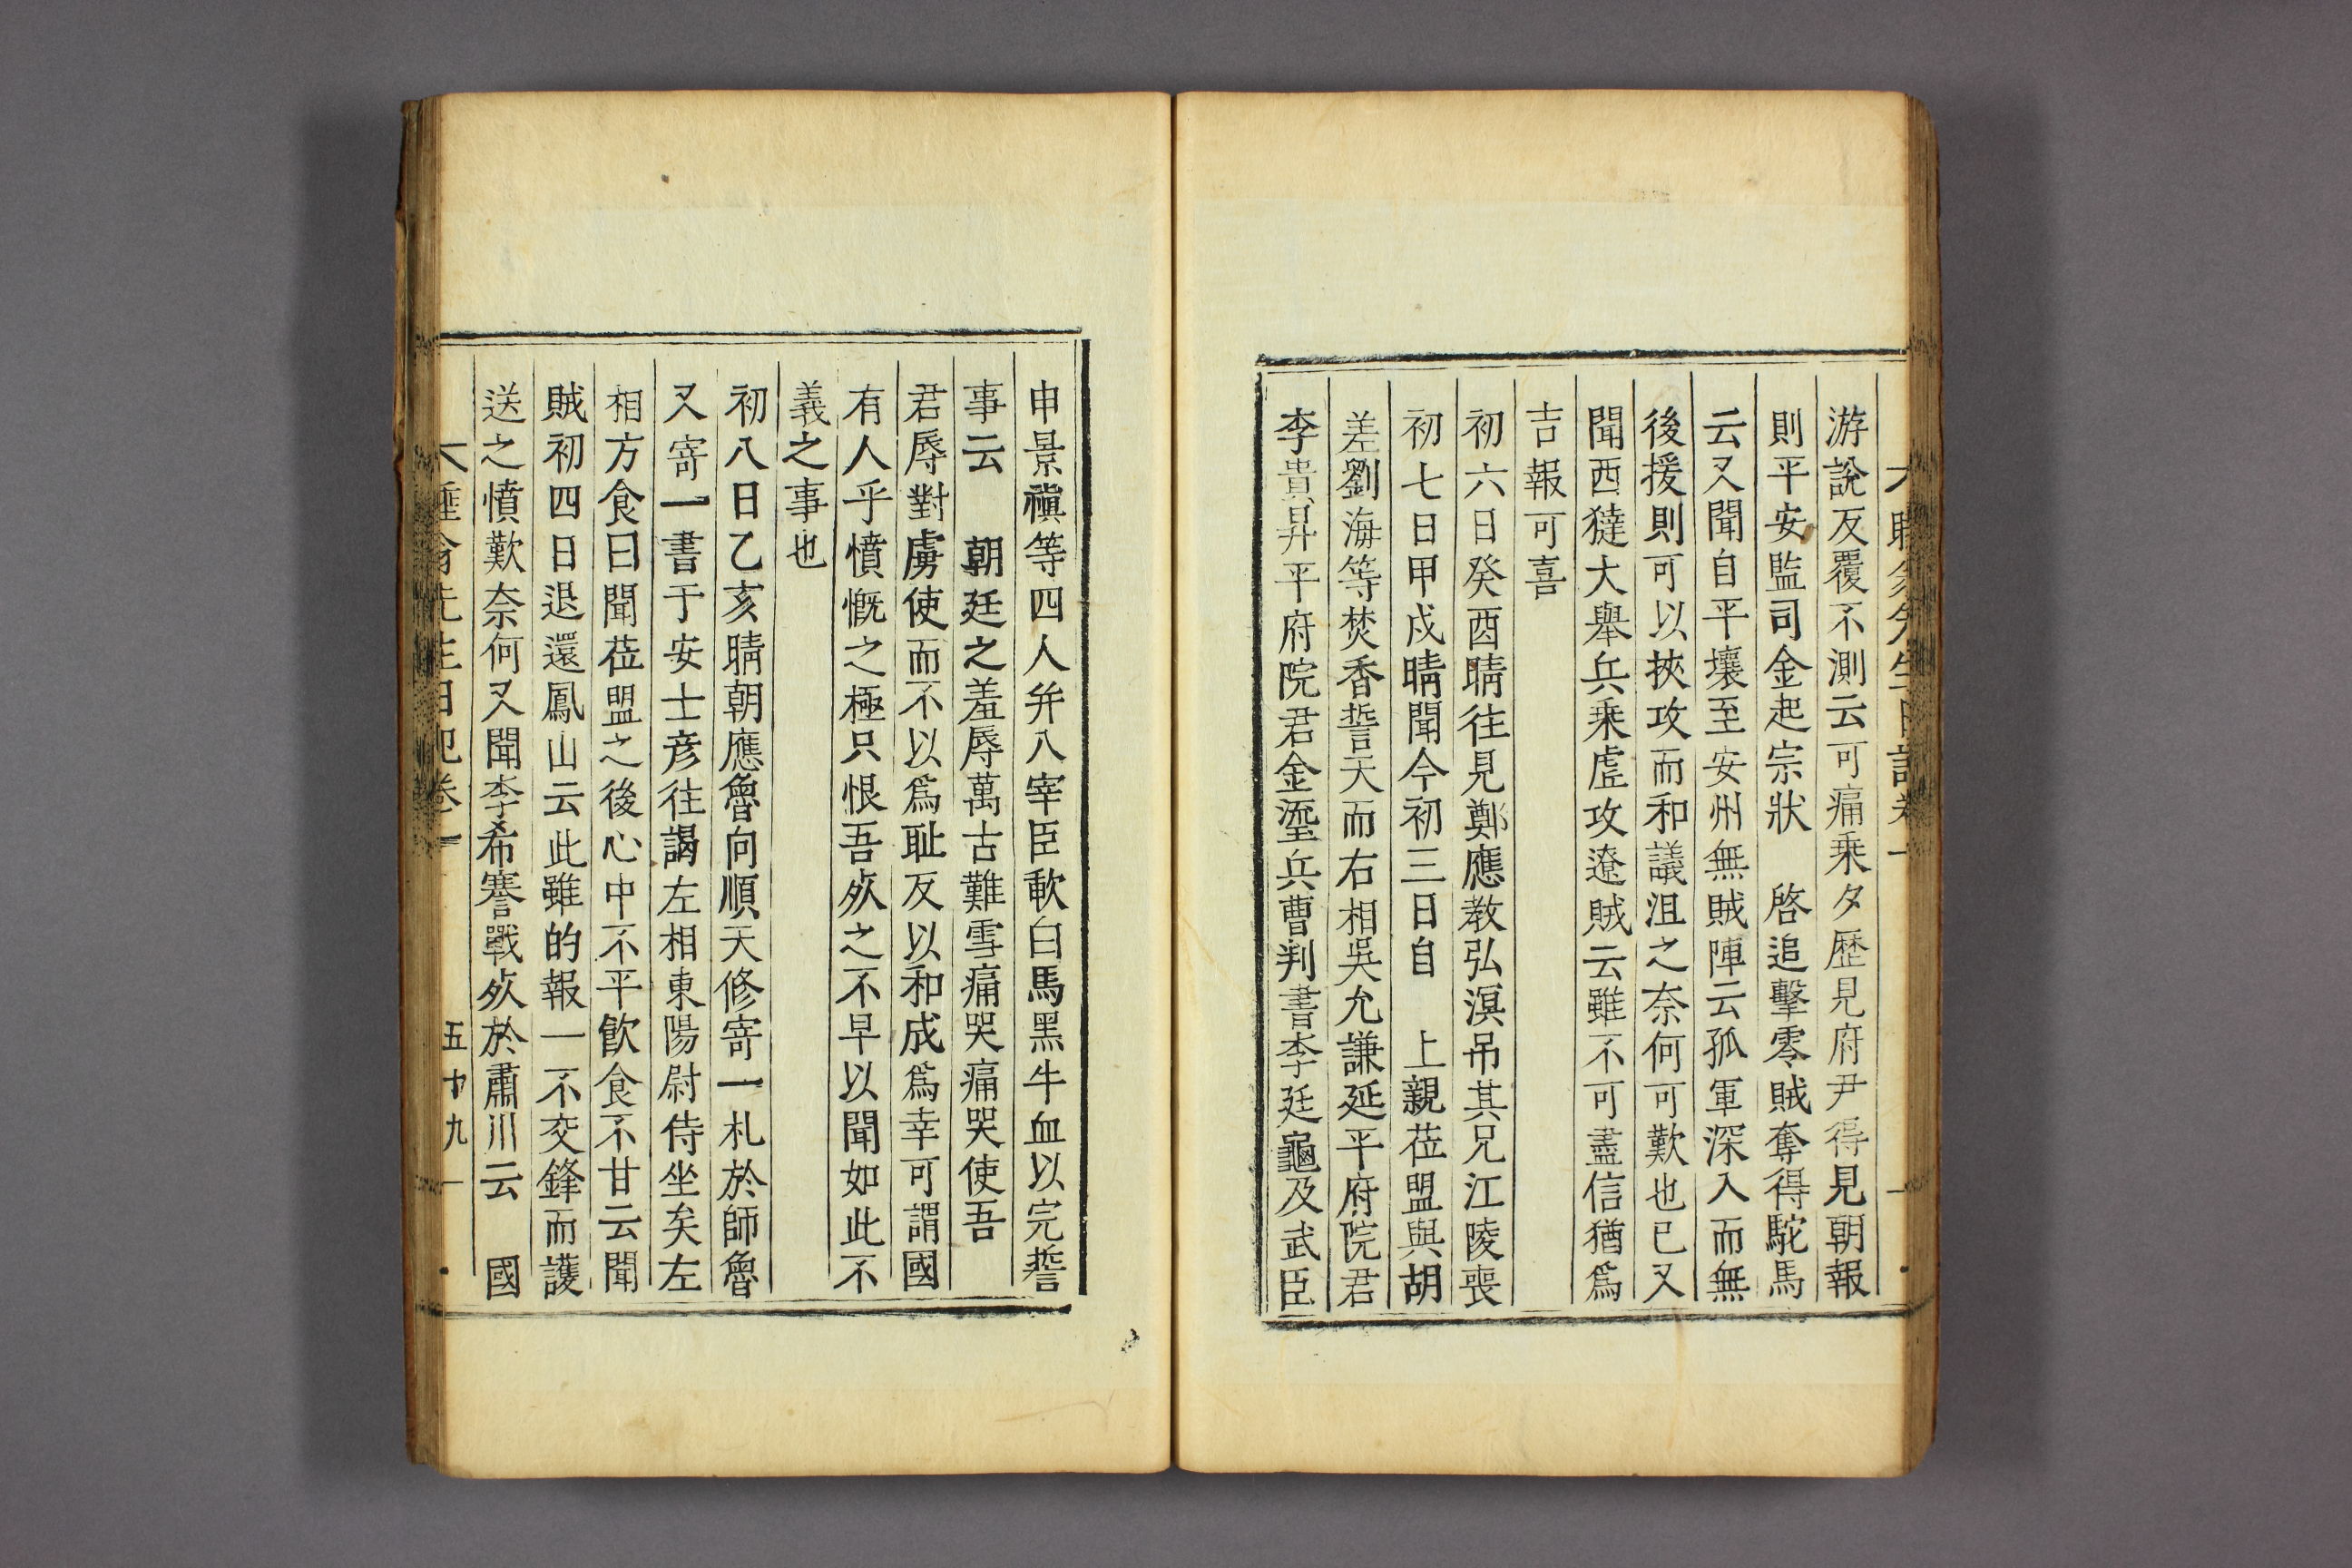 游說反覆不測云可痛乗夕歷見府尹得見朝報
則平安監司金起宗狀　啓追擊零賊奪得駝馬
云又聞自平壤至安州無賊陣云孤軍深入而無
後援則可以挾攻而和議沮之奈何可歎也已又
聞西㺚大舉兵乗虛攻遼賊云雖不可盡信猶爲
吉報可喜
初六日癸酉晴往見鄭應教弘溟吊其兄江陵喪
初七日甲戌晴聞今初三日自　上親莅盟與胡
差劉海等焚香誓天而右相吳允謙延平府院君
李貴昇平府院君金瑬兵曹判書李廷龜及武臣
申景禛等四人幷八宰臣歃白馬黑牛血以完誓
事云　朝廷之羞辱萬古難雪痛哭痛哭使吾
君辱對虜使而不以爲耻反以和成爲幸可謂國
有人乎憤慨之極只恨吾㱙之不早以聞如此不
義之事也
初八日乙亥晴朝應魯向順天修寄一札於師魯
又寄一書于安士彦往謁左相東陽尉侍坐矣左
相方食曰聞莅盟之後心中不平飮食不甘云聞
賊初四日退還鳳山云此雖的報一不交鋒而護
送之憤歎奈何又聞李希蹇戰㱙於肅川云　國
五十九